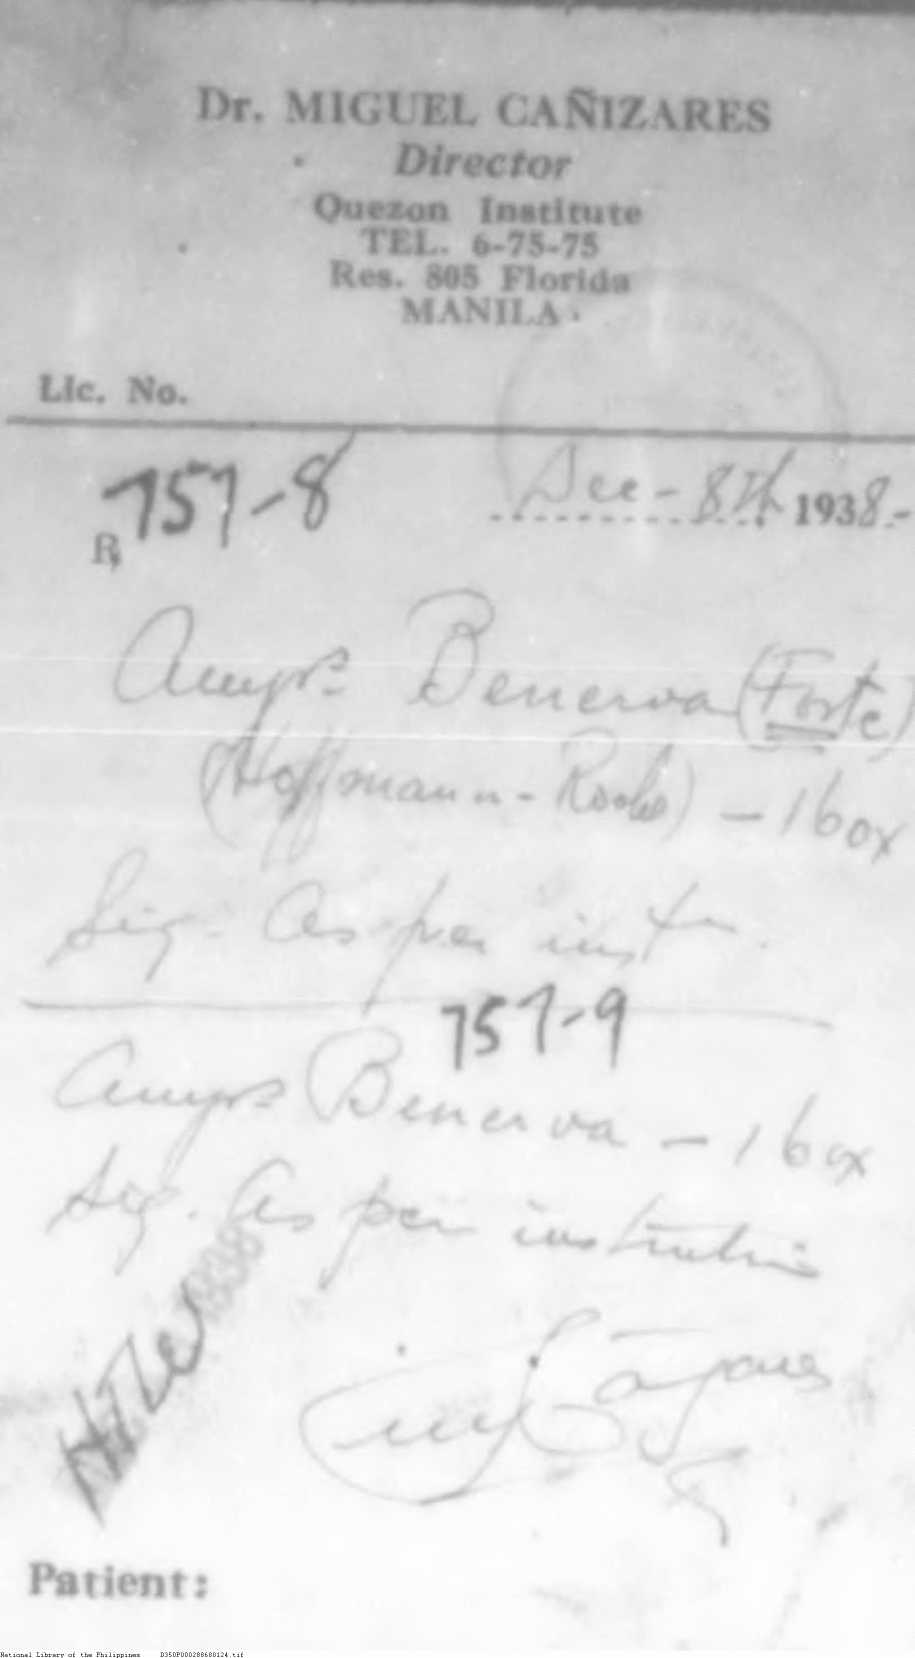 Dr. MIGUEL CAÑIZARES
Director
Quezon Institute
TEL. 6-75-75
Res. 805 Florida
MANILA
Lic. No.
757-8 Dec - 8th 1938.-
℞
Amps. Benerva (Forte)
(Hoffmann-Roche) - 1 box
Sig. As per inst
757-9
Amps Benerva - 1 box
Sig. As per instruction
Patient:
National Library of the Philippines D350P000288680124.tif